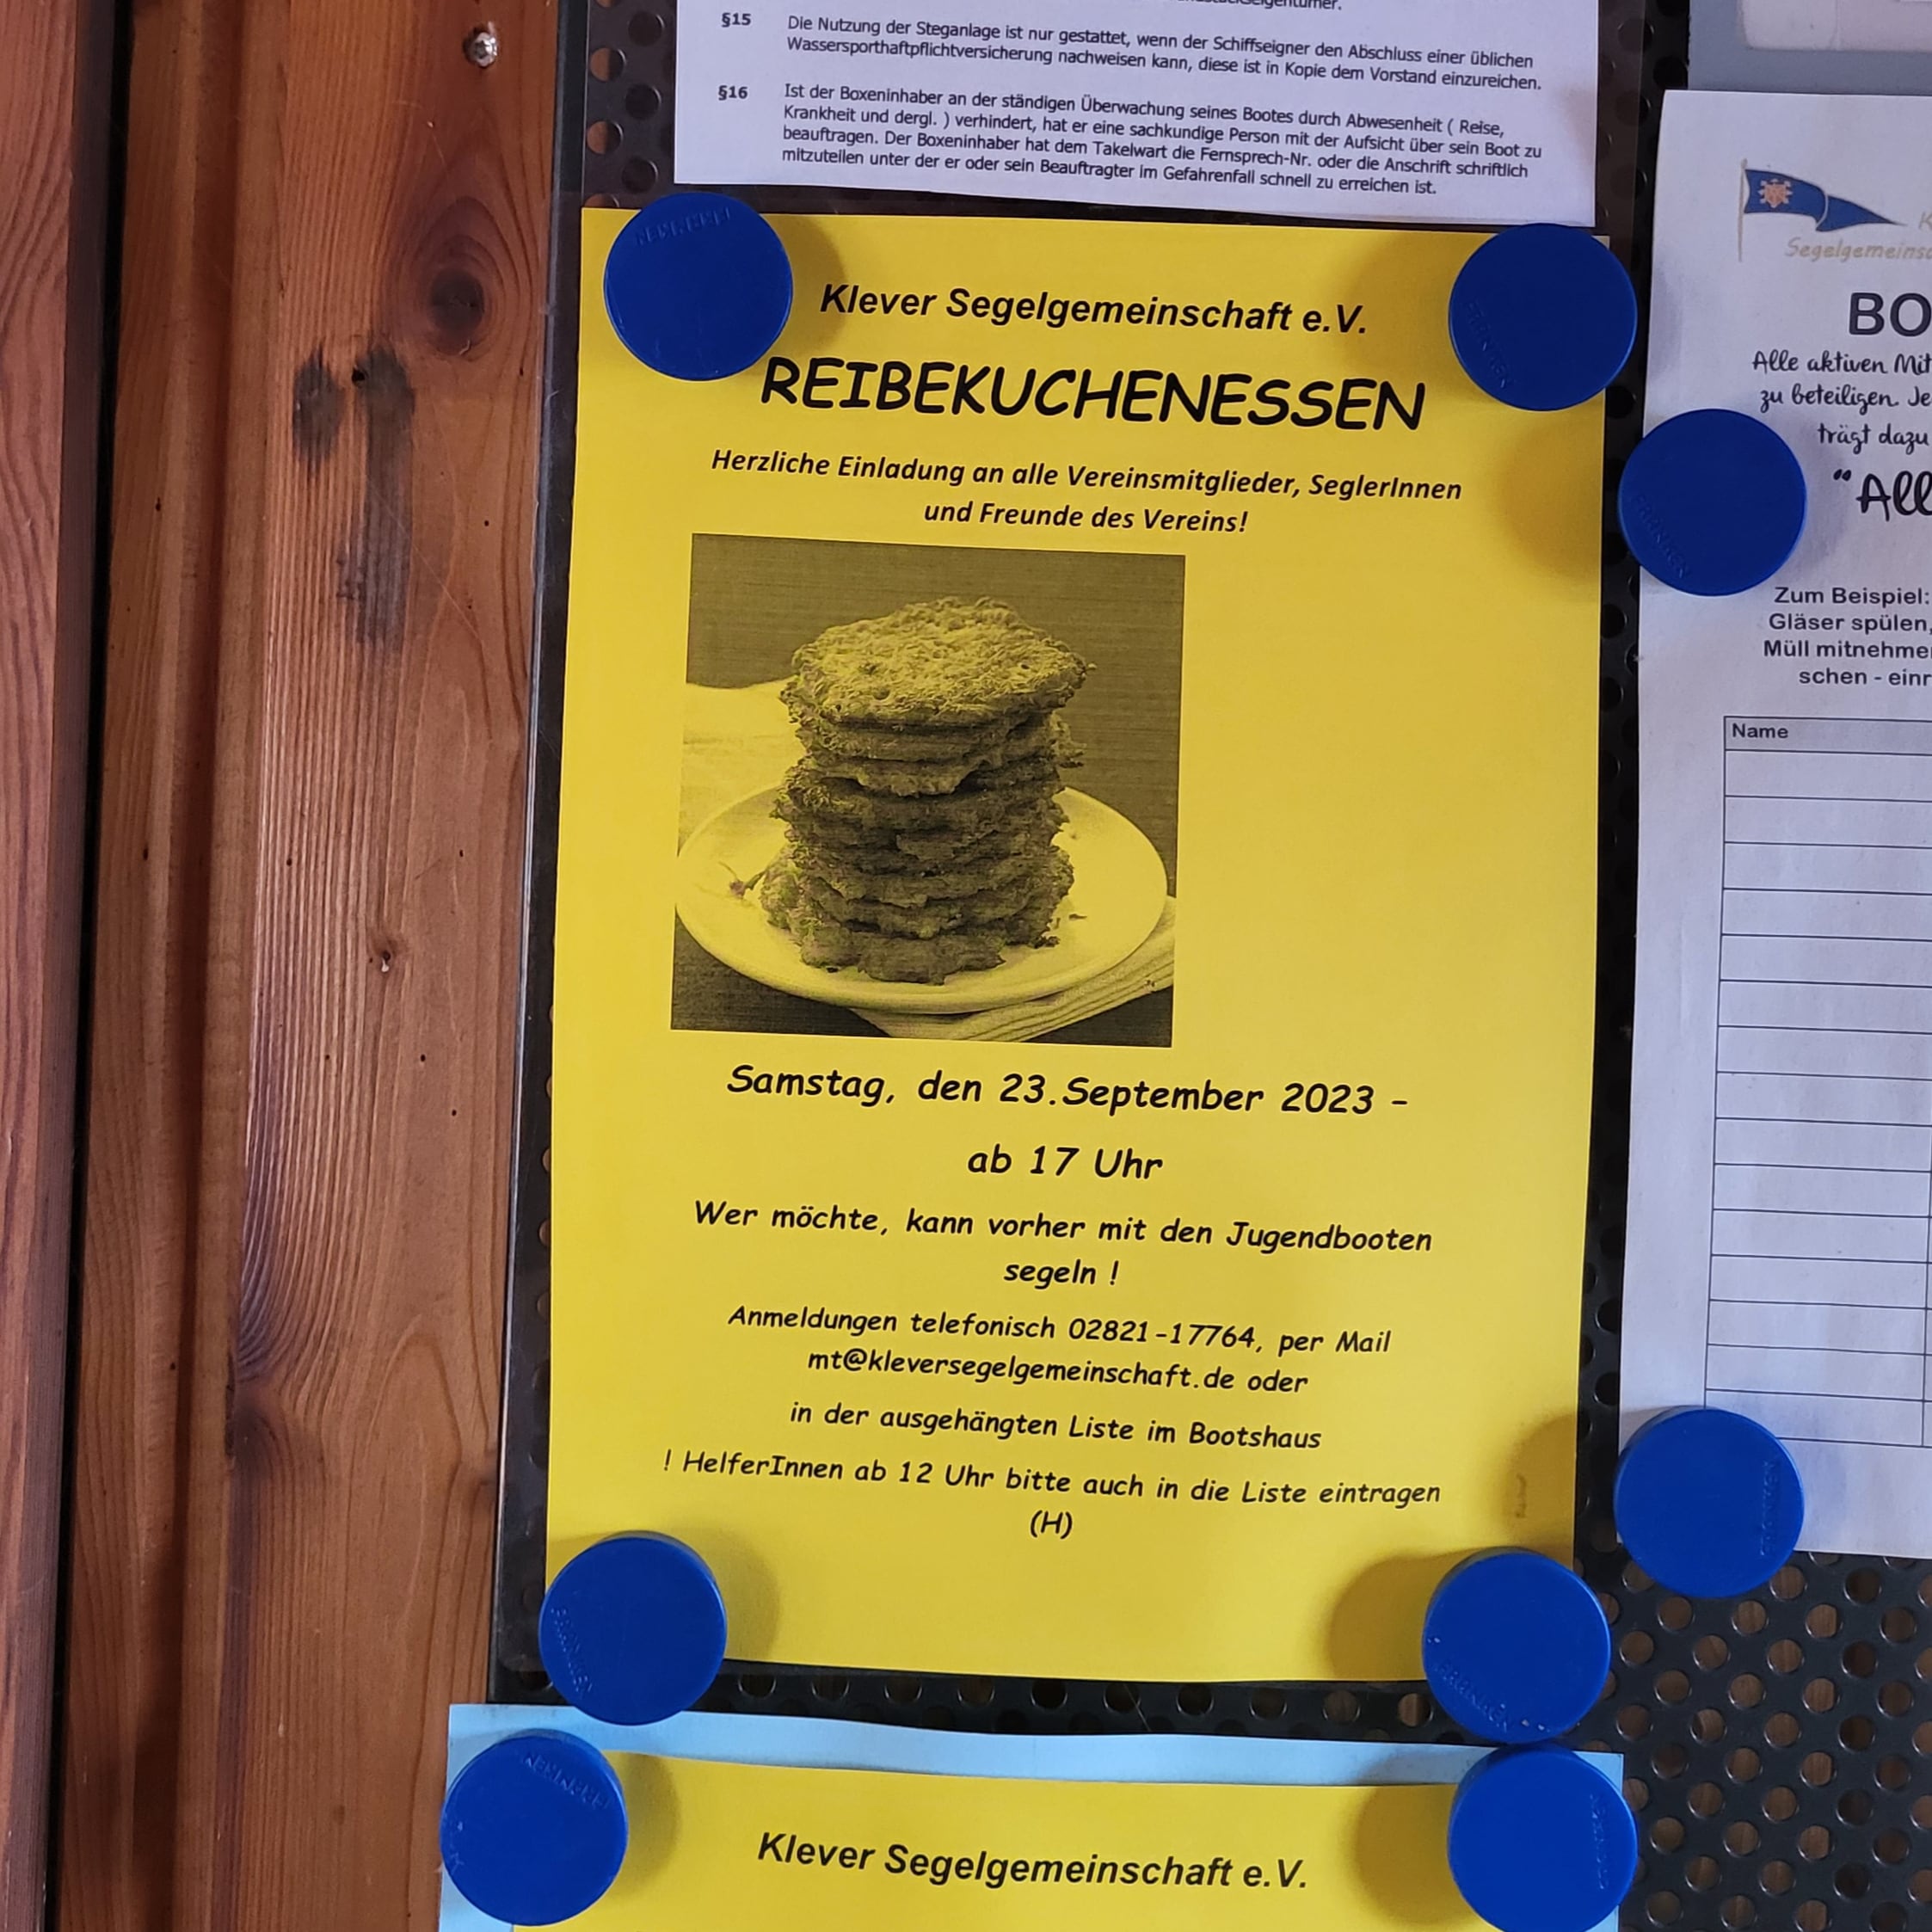 §15 Die Nutzung der Steganlage ist nur gestattet, wenn der Schiffseigner den Abschluss einer üblichen
Wassersporthaftpflichtversicherung nachweisen kann, diese ist in Kopie dem Vorstand einzureichen.
§16 Ist der Boxeninhaber an der ständigen Überwachung seines Bootes durch Abwesenheit ( Reise,
Krankheit und dergl. ) verhindert, hat er eine sachkundige Person mit der Aufsicht über sein Boot zu
beauftragen. Der Boxeninhaber hat dem Takelwart die Fernsprech-Nr. oder die Anschrift schriftlich
mitzuteilen unter der er oder sein Beauftragter im Gefahrenfall schnell zu erreichen ist.
Klever Segelgemeinschaft e.V.
REIBEKUCHENESSEN
Herzliche Einladung an alle Vereinsmitglieder, SeglerInnen
und Freunde des Vereins!
Samstag, den 23.September 2023 -
ab 17 Uhr
Wer möchte, kann vorher mit den Jugendbooten
segeln !
Anmeldungen telefonisch 02821-17764, per Mail
mt@kleversegelgemeinschaft.de oder
in der ausgehängten Liste im Bootshaus
! HelferInnen ab 12 Uhr bitte auch in die Liste eintragen
(H)
Klever Segelgemeinschaft e.V.
K
Segelgemeinsc
BO
Alle aktiven Mit
zu beteiligen. Je
trägt dazu
"All
Zum Beispiel:
Gläser spülen,
Müll mitnehme
schen - einr
Name